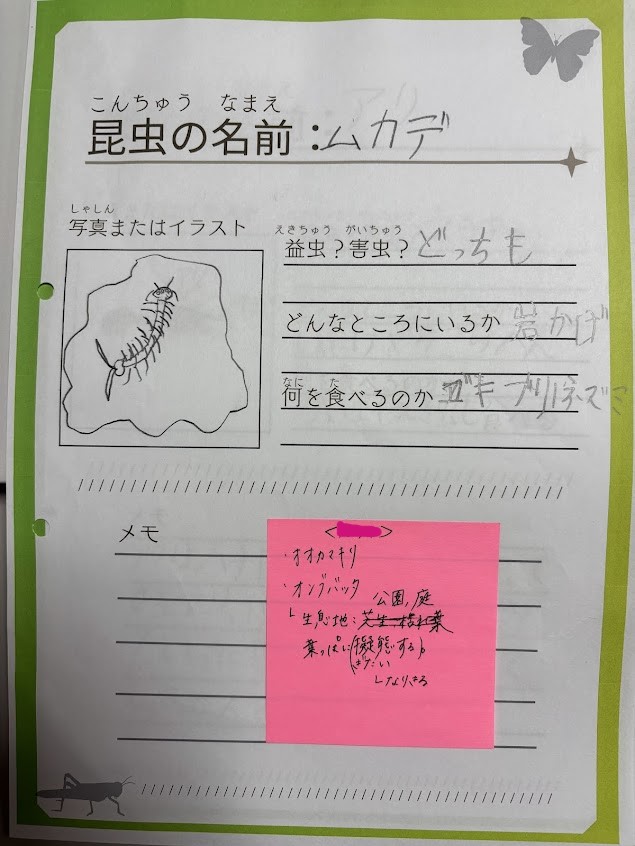 こんちゅう なまえ
昆虫の名前：ムカデ
しゃしん
写真またはイラスト
えきちゅう がいちゅう
益虫？害虫？どっちも
どんなところにいるか 岩かげ
なに た
何を食べるのか ゴキブリ、ネズミ
メモ
・オオカマキリ
・オンブバッタ
公園、庭
└生息地：芝生、枯れ葉
葉っぱに(擬態する)
ぎたい
└なりきる